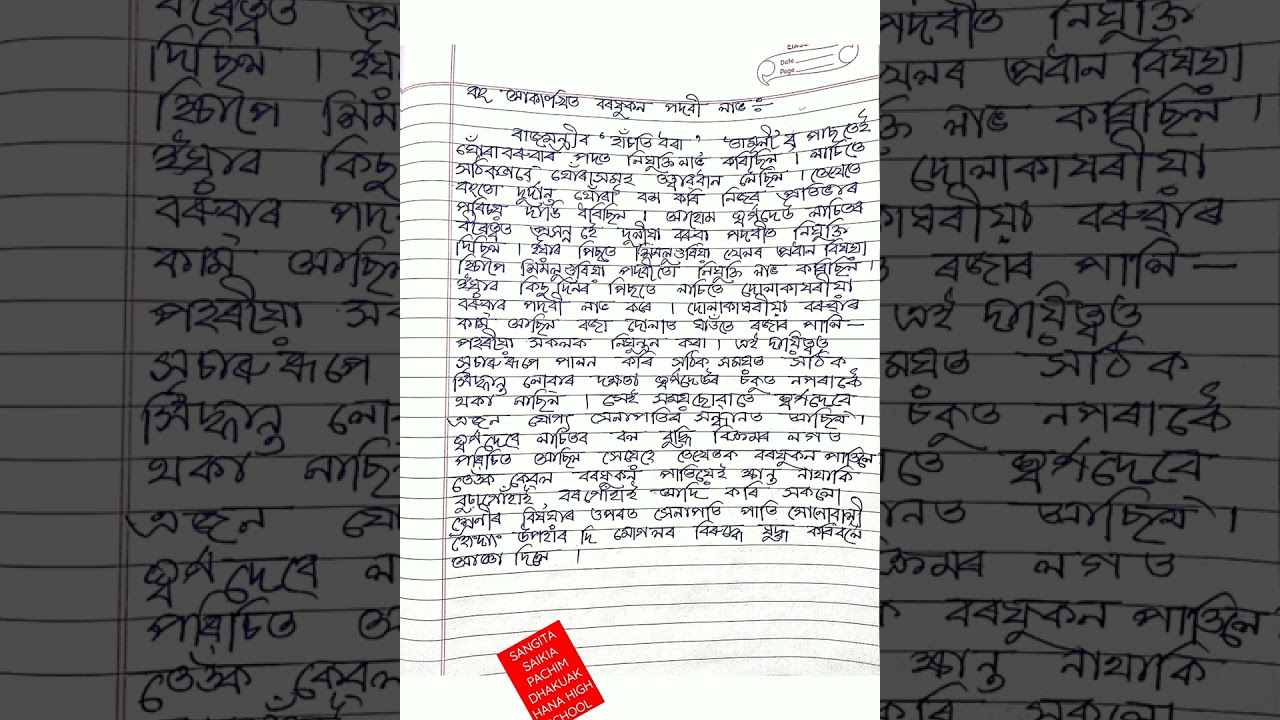 Date
Page
বহু আকাংখিত বৰফুকন পদবী লাভ ঃ-
ৰাজমন্ত্ৰীৰ 'হাঁচতি ধৰা' 'তামুলী'ৰ পাছতেই
ঘোঁৰা বৰুৱাৰ পদত নিযুক্তি লাভ কৰিছিল । লাচিতে
সঠিকভাৱে ঘোঁৰাসমূহ তত্বাৱধান লৈছিল । তেখেতে
বহুতো দুৰ্দান্ত ঘোঁৰা বশ কৰি নিজৰ প্ৰতিভাৰ
পৰিচয় দাঙি ধৰিছিল । আহোম স্বৰ্গদেউ লাচিতৰ
বীৰত্বত প্ৰসন্ন হৈ দুলীয়া বৰুৱা পদবীত নিযুক্তি
দিছিল । ইয়াৰ পিছতে শিমলুগুৰিয়া খেলৰ প্ৰধান বিষয়া
হিচাপে শিমলুগুৰিয়া পদবীতো নিযুক্তি লাভ কৰিছিল ।
ইয়াৰ কিছু দিনৰ পিছতে লাচিতে দোলাকাষৰীয়া
বৰুৱাৰ পদবী লাভ কৰে । দোলাকাষৰীয়া বৰুৱাৰ
কাম আছিল ৰজা দোলাত যাওঁতে ৰজাৰ পালি —
পহৰীয়া সকলক নিয়ন্ত্ৰন কৰা । এই দায়িত্বত
সুচাৰু ৰূপে পালন কৰি সঠিক সময়ত সঠিক
সিদ্ধান্ত লোৱাৰ দক্ষতা স্বৰ্গদেউৰ চকুত নপৰাকৈ
থকা নাছিল । সেই সময়ছোৱাতে স্বৰ্গদেৱে
এজন যোগ্য সেনাপতিৰ সন্ধানত আছিল ।
স্বৰ্গদেৱে লাচিতৰ বল বুদ্ধি বিক্ৰমৰ লগত
পৰিচিত আছিল সেয়েহে তেখেতক বৰফুকন পাতিলে
তেওঁক কেৱল বৰফুকন পাতিয়েই ক্ষান্ত নাথাকি
বুঢ়াগোহাঁই বৰগোহাঁই আদি কৰি সকলো
শ্ৰেণীৰ বিষয়াৰ ওপৰত সেনাপতি পাতি সোণোৱালী
হেংদাং উপহাৰ দি মোগলৰ বিৰুদ্ধে যুদ্ধ কৰিবলৈ
আজ্ঞা দিলে ।
SANGITA
SAIKIA
PACHIM
DHAKUAK
HANA HIGH
SCHOOL